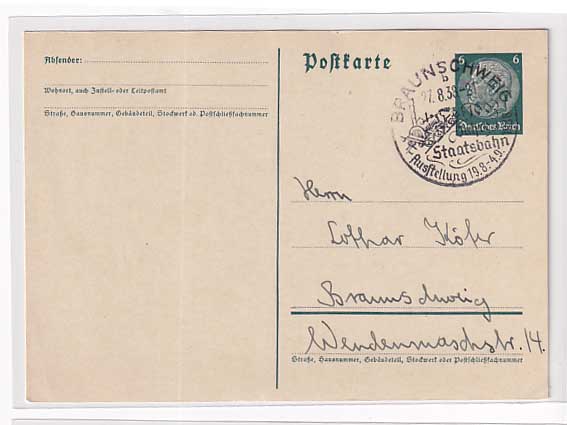 Absender:
Wohnort, auch Zustell- oder Leitpostamt
Straße, Hausnummer, Gebäudeteil, Stockwerk od. Postschließfachnummer
Postkarte
6 6
Deutsches Reich
BRAUNSCHWEIG
b
27.8.38
Staatsbahn
Ausstellung 19.8.-4.9.
Herrn
Lothar Köfer
Braunschweig
Wendenmaschstr. 14.
Straße, Hausnummer, Gebäudeteil, Stockwerk oder Postschließfachnummer